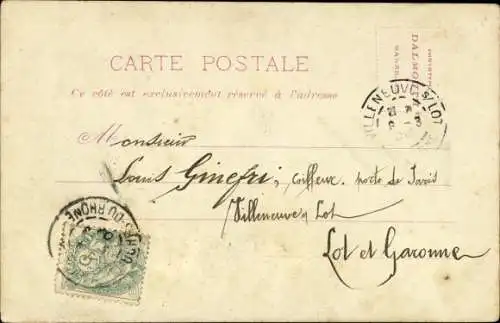 CARTE POSTALE
Ce côté est exclusivement réservé à l'adresse
VILLENEUVE S/LOT
Monsieur
Louis Ginefri, coiffeur, porte de Paris
Villeneuve s/ Lot
Lot et Garonne
DU-RHÔNE